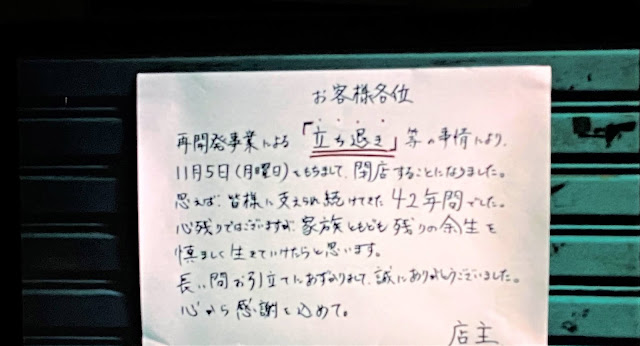 お客様各位
再開発事業による「立ち退き」等の事情により、
11月5日(月曜日)をもちまして、閉店することになりました。
思えば、皆様に支えられ続けてきた42年間でした。
心残りではございますが、家族ともども残りの余生を
慎ましく生きていけたらと思います。
長い間お引立てにあずかりまして、誠にありがとうございました。
心から感謝を込めて。
店主